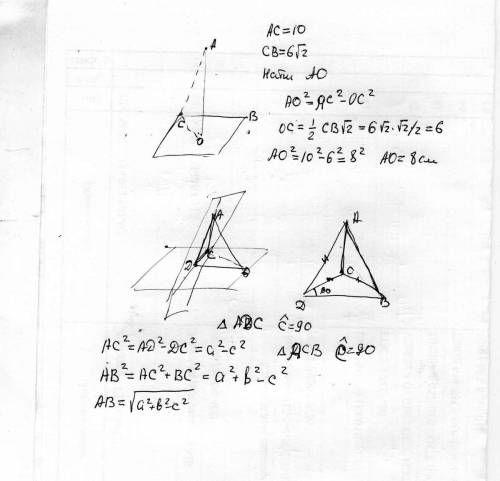 A
B
C
O
AC=10
CB=6√2
Найти AO
AO²=AC²-OC²
OC=½ CB√2=6√2·√2/2=6
AO²=10²-6²=8² AO=8см
A
C
D
B
A
C
D
90
B
Δ ADC Ĉ=90
AC²=AD²-DC²=a²-c² Δ ACB Ĉ=90
AB²=AC²+BC²=a²+b²-c²
AB=√a²+b²-c²